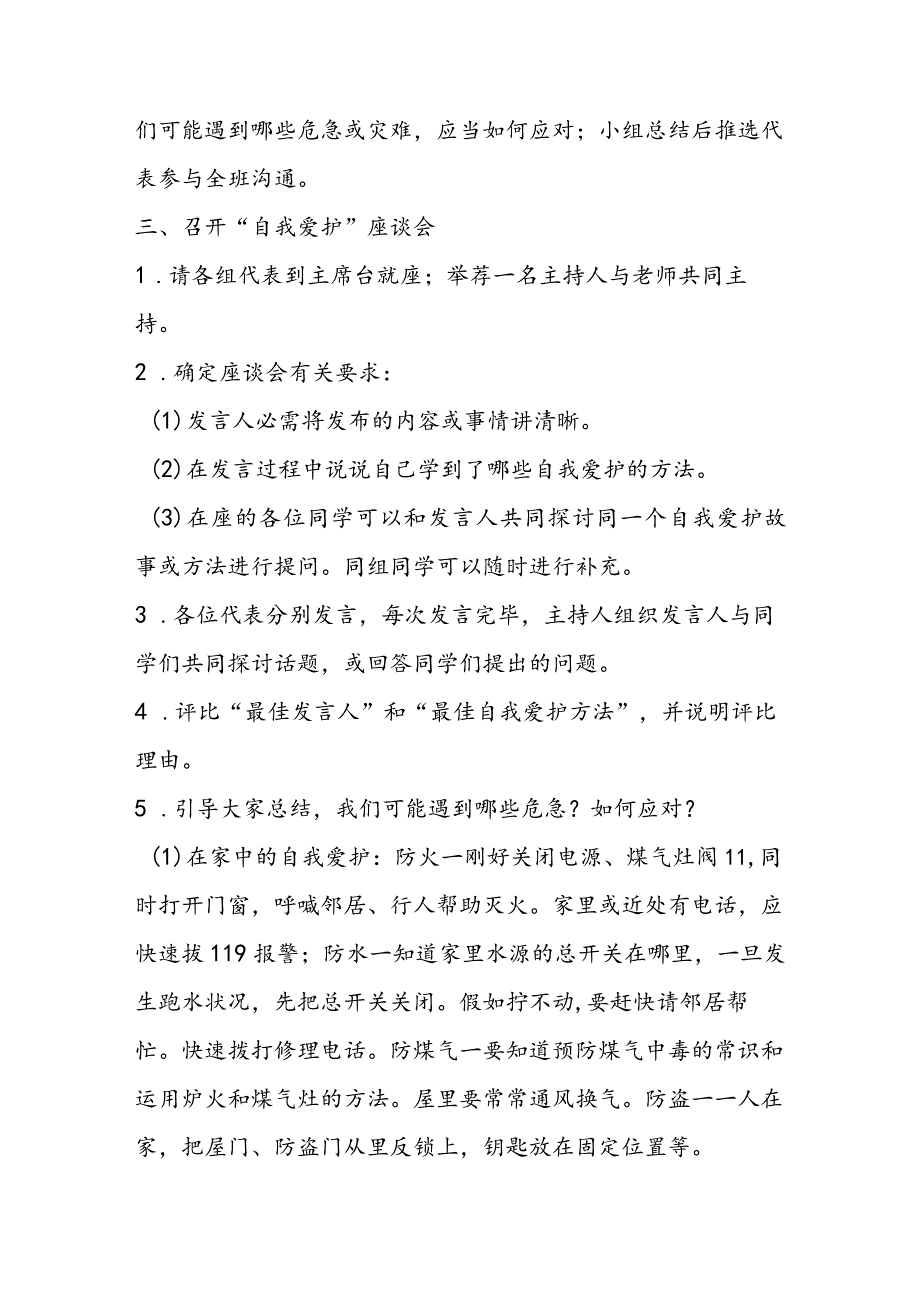 们可能遇到哪些危急或灾难，应当如何应对；小组总结后推选代
表参与全班沟通。
三、召开“自我爱护”座谈会
1 .请各组代表到主席台就座；举荐一名主持人与老师共同主
持。
2 .确定座谈会有关要求：
(1)发言人必需将发布的内容或事情讲清晰。
(2)在发言过程中说说自己学到了哪些自我爱护的方法。
(3)在座的各位同学可以和发言人共同探讨同一个自我爱护故
事或方法进行提问。同组同学可以随时进行补充。
3 .各位代表分别发言，每次发言完毕，主持人组织发言人与同
学们共同探讨话题，或回答同学们提出的问题。
4 .评比“最佳发言人”和“最佳自我爱护方法”，并说明评比
理由。
5 .引导大家总结，我们可能遇到哪些危急？如何应对？
(1)在家中的自我爱护：防火一刚好关闭电源、煤气灶阀11,同
时打开门窗，呼喊邻居、行人帮助灭火。家里或近处有电话，应
快速拔119报警；防水一知道家里水源的总开关在哪里，一旦发
生跑水状况，先把总开关关闭。假如拧不动,要赶快请邻居帮
忙。快速拨打修理电话。防煤气一要知道预防煤气中毒的常识和
运用炉火和煤气灶的方法。屋里要常常通风换气。防盗一一人在
家，把屋门、防盗门从里反锁上，钥匙放在固定位置等。